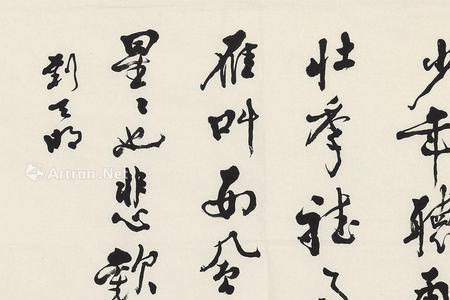 少年聽雨
壮年聽
雁叫西風
星々也悲歡
到天明
Artron.Net